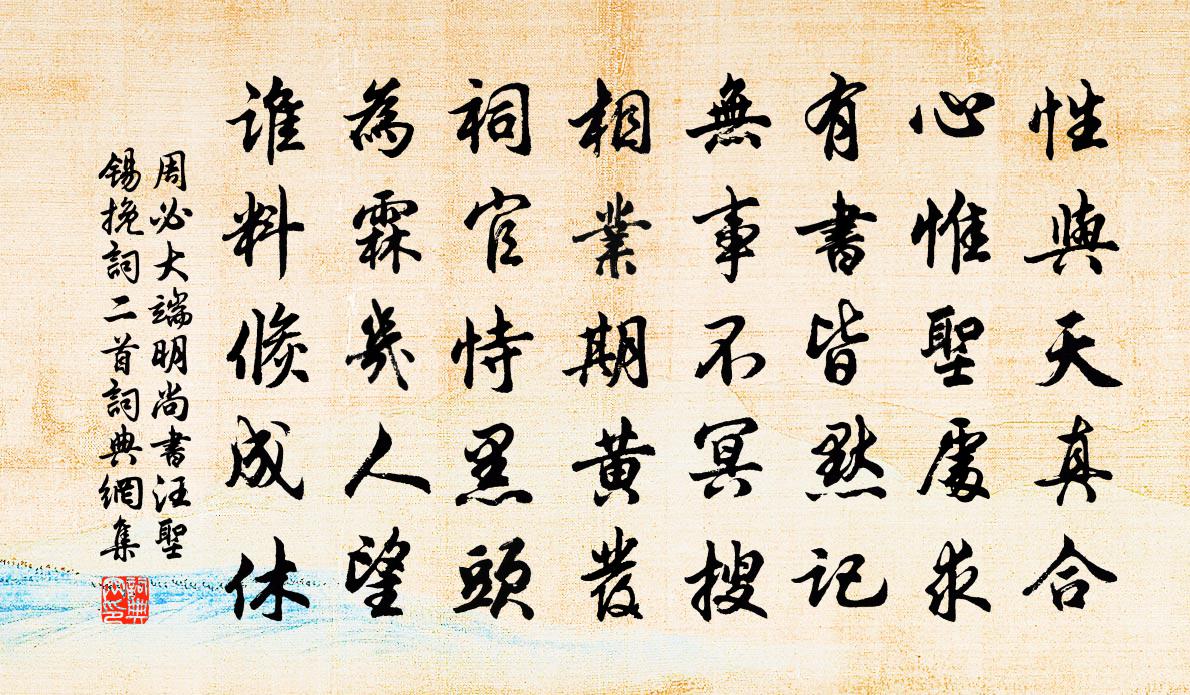 性與天真合
心惟聖處求
有書皆默記
無事不冥搜
相業期黃發
祠官恃黑頭
為霖幾人望
誰料倏成休
周必大端明尚書汪聖
錫挽詞二首詞典網集